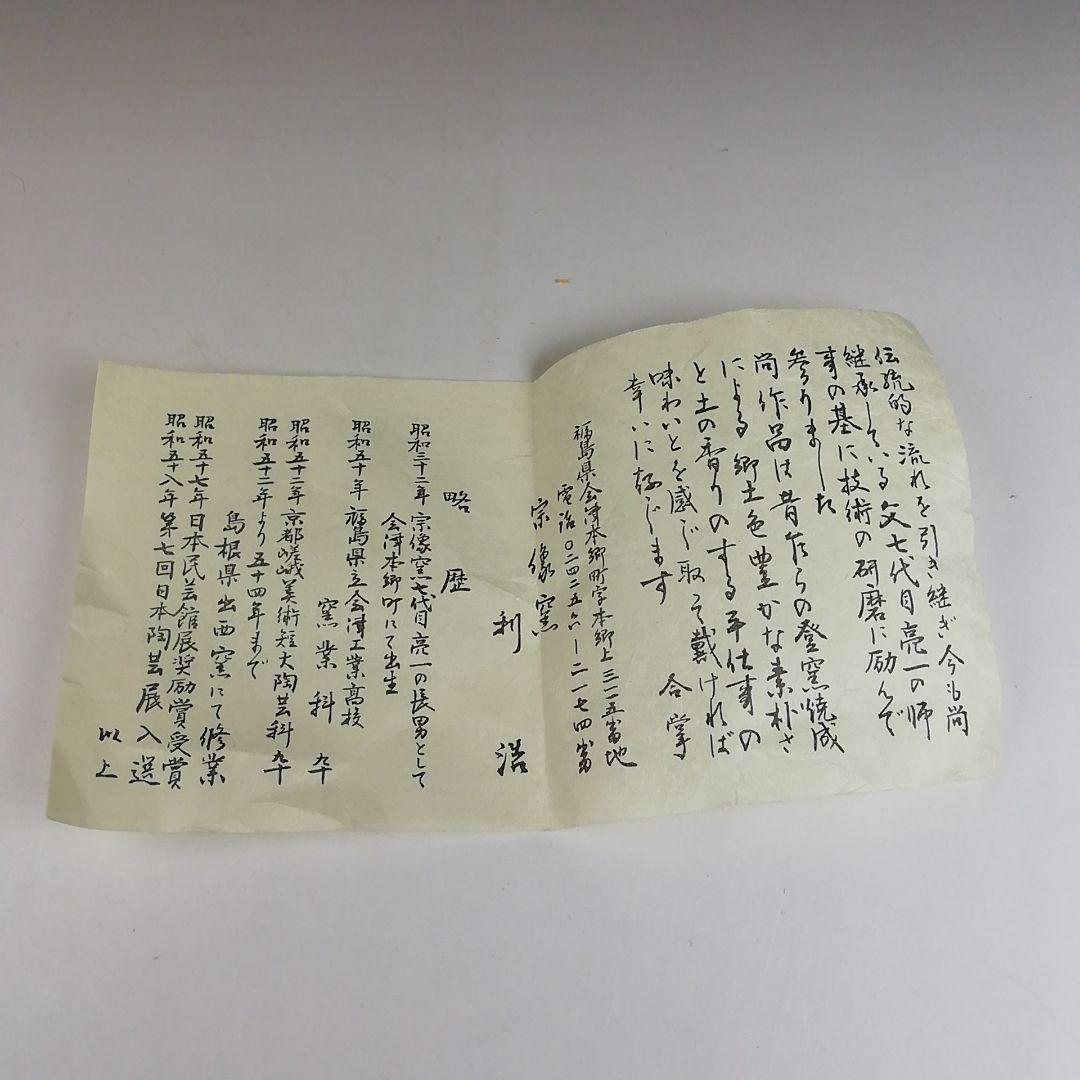 伝統的な流れを引き継ぎ今も尚
継承している父七代目亮一の師
事の基に技術の研磨に励んで
参りました
尚作品は昔乍らの登窯焼成
による郷土色豊かな素朴さ
と土の香りのする手仕事の
味わいとを感じ取って戴ければ
幸いに存じます
合掌
福島県会津本郷町字本郷上三一一五番地
電話〇二四二五六ー二一七四番
宗像窯
利浩
略歴
昭和三十二年 宗像窯七代目亮一の長男として
会津本郷町にて出生
昭和五十年 福島県立会津工業高校
窯業科 卆
昭和五十二年 京都嵯峨美術短大陶芸科 卆
昭和五十二年より五十四年まで
島根県出西窯にて修業
昭和五十七年 日本民芸館展奨励賞受賞
昭和五十八年 第七回日本陶芸展入選
以上